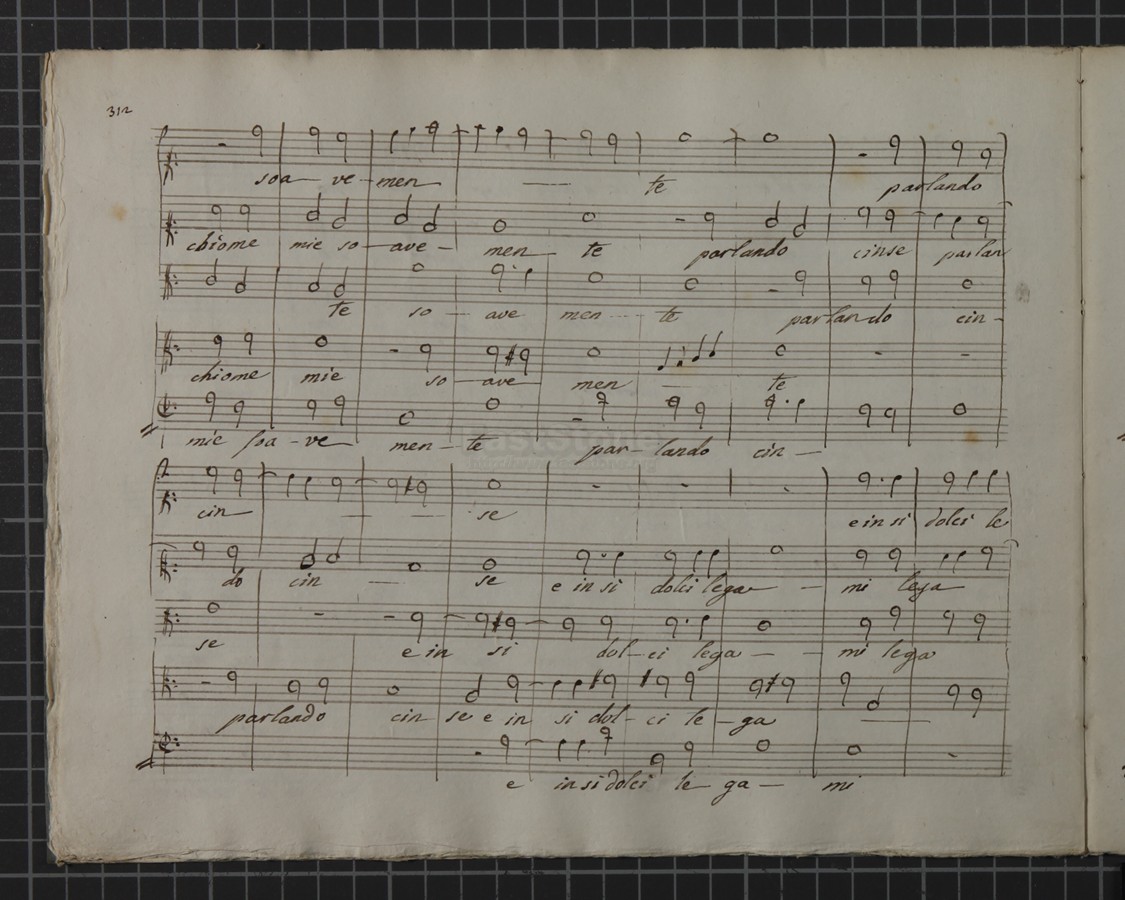 312
soa - ve - men - te parlando
chiome mie so - ave - men te parlando cinse parlan
te so - ave men - te parlando cin -
chiome mie so - ave men - te
mie soa - ve men - te par - lando cin -
cin - se e in si dolci le
do cin - se e in si dolci lega - mi lega
se e in si dol - ci lega - mi lega
parlando cin - se e in si dol - ci le - ga
e in si dolci le - ga - mi